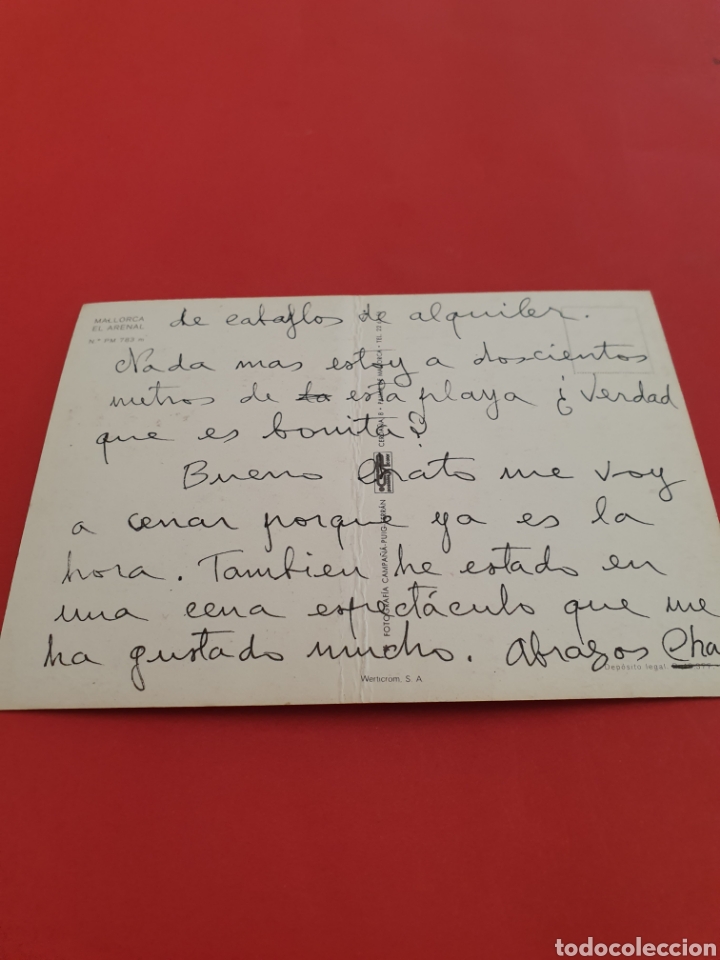 MALLORCA
EL ARENAL
N.º PM 783
de caballos de alquiler.
Nada mas estoy a doscientos
metros de la esta playa ¿Verdad
que es bonita?
Bueno me voy
a cenar porque ya es la
hora. Tambien he estado en
una cena espectáculo que me
ha gustado mucho. Abrazos Cha
FOTOGRAFÍA CAMPAÑÁ-PUIG-FERRÁN
Werticrom, S. A.
Depósito legal
todocoleccion